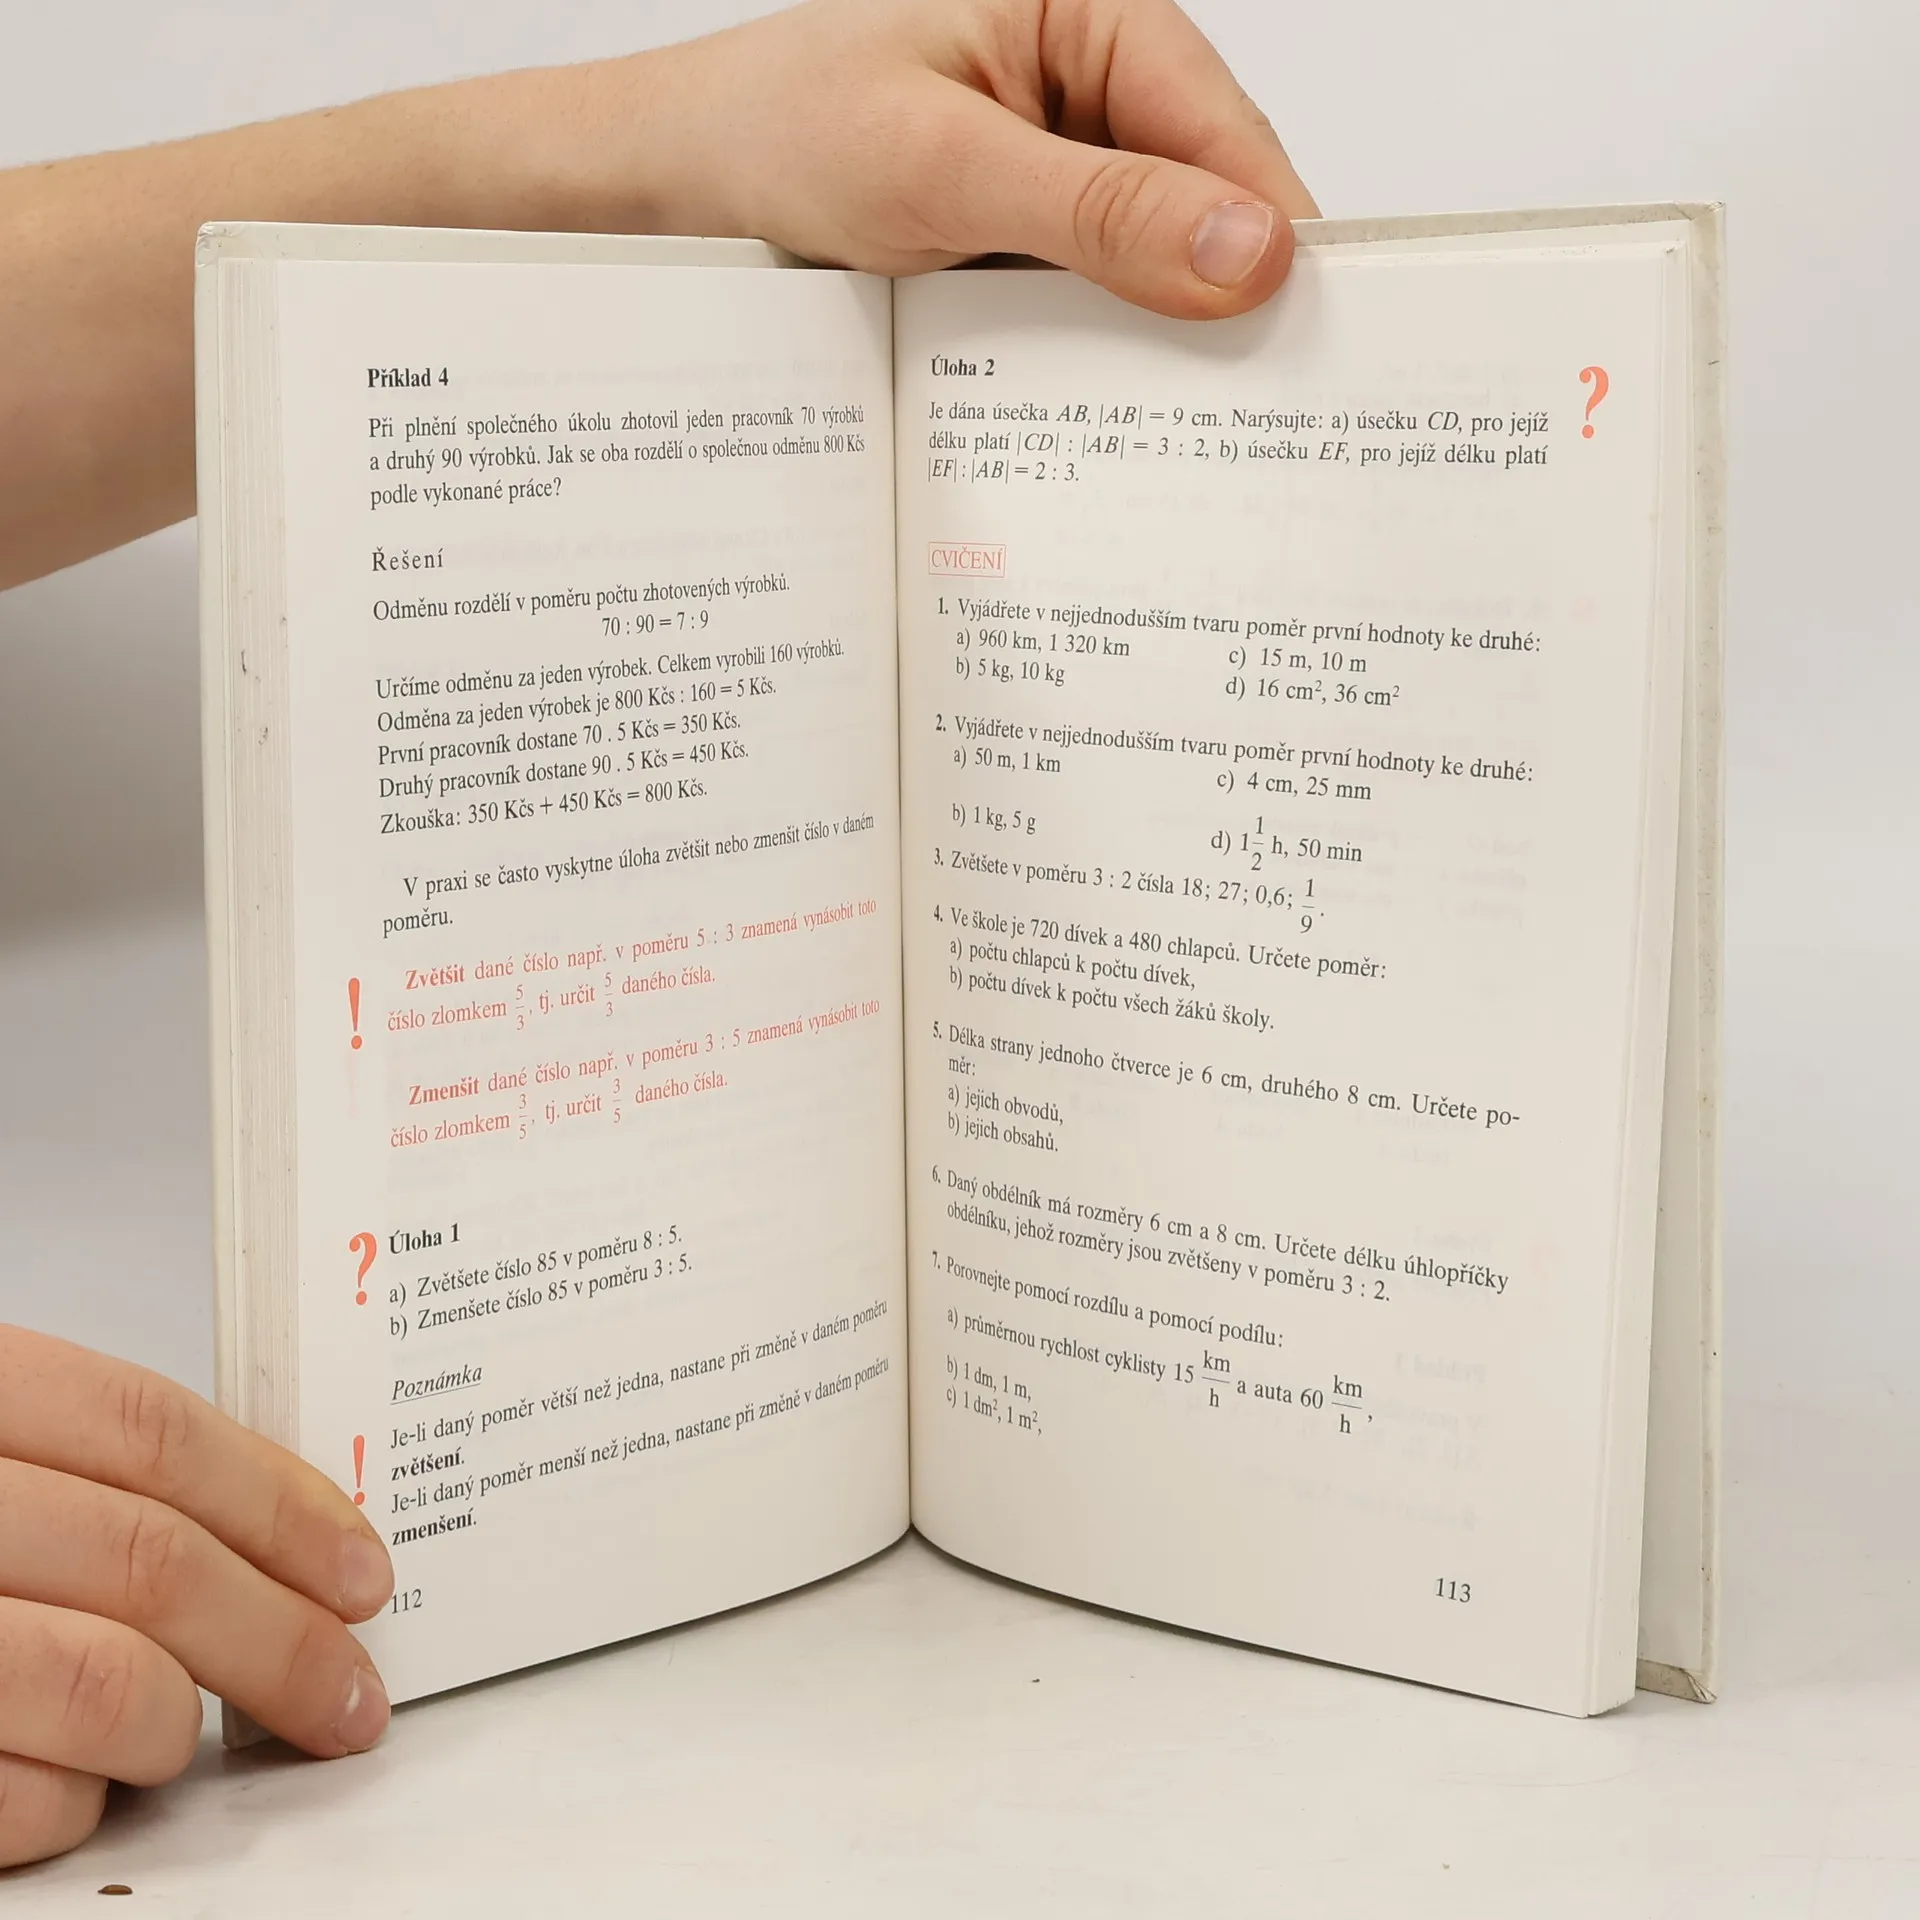 Příklad 4
Při plnění společného úkolu zhotovil jeden pracovník 70 výrobků
a druhý 90 výrobků. Jak se oba rozdělí o společnou odměnu 800 Kčs
podle vykonané práce?
Řešení
Odměnu rozdělí v poměru počtu zhotovených výrobků.
70 : 90 = 7 : 9
Určíme odměnu za jeden výrobek. Celkem vyrobili 160 výrobků.
Odměna za jeden výrobek je 800 Kčs : 160 = 5 Kčs.
První pracovník dostane 70 . 5 Kčs = 350 Kčs.
Druhý pracovník dostane 90 . 5 Kčs = 450 Kčs.
Zkouška: 350 Kčs + 450 Kčs = 800 Kčs.
V praxi se často vyskytne úloha zvětšit nebo zmenšit číslo v daném
poměru.
Zvětšit dané číslo např. v poměru 5 : 3 znamená vynásobit toto
! číslo zlomkem 5/3, tj. určit 5/3 daného čísla.
Zmenšit dané číslo např. v poměru 3 : 5 znamená vynásobit toto
číslo zlomkem 3/5, tj. určit 3/5 daného čísla.
? Úloha 1
a) Zvětšete číslo 85 v poměru 8 : 5.
b) Zmenšete číslo 85 v poměru 3 : 5.
Poznámka
Je-li daný poměr větší než jedna, nastane při změně v daném poměru
! zvětšení.
Je-li daný poměr menší než jedna, nastane při změně v daném poměru
zmenšení.
112
Úloha 2 ?
Je dána úsečka AB, |AB| = 9 cm. Narýsujte: a) úsečku CD, pro jejíž
délku platí |CD| : |AB| = 3 : 2, b) úsečku EF, pro jejíž délku platí
|EF| : |AB| = 2 : 3.
CVIČENÍ
1. Vyjádřete v nejjednodušším tvaru poměr první hodnoty ke druhé:
a) 960 km, 1 320 km c) 15 m, 10 m
b) 5 kg, 10 kg d) 16 cm², 36 cm²
2. Vyjádřete v nejjednodušším tvaru poměr první hodnoty ke druhé:
a) 50 m, 1 km c) 4 cm, 25 mm
b) 1 kg, 5 g d) 1 1/2 h, 50 min
3. Zvětšete v poměru 3 : 2 čísla 18; 27; 0,6; 1/9.
4. Ve škole je 720 dívek a 480 chlapců. Určete poměr:
a) počtu chlapců k počtu dívek,
b) počtu dívek k počtu všech žáků školy.
5. Délka strany jednoho čtverce je 6 cm, druhého 8 cm. Určete po-
měr:
a) jejich obvodů,
b) jejich obsahů.
6. Daný obdélník má rozměry 6 cm a 8 cm. Určete délku úhlopříčky
obdélníku, jehož rozměry jsou zvětšeny v poměru 3 : 2.
7. Porovnejte pomocí rozdílu a pomocí podílu:
a) průměrnou rychlost cyklisty 15 km/h a auta 60 km/h,
b) 1 dm, 1 m,
c) 1 dm², 1 m²,
113